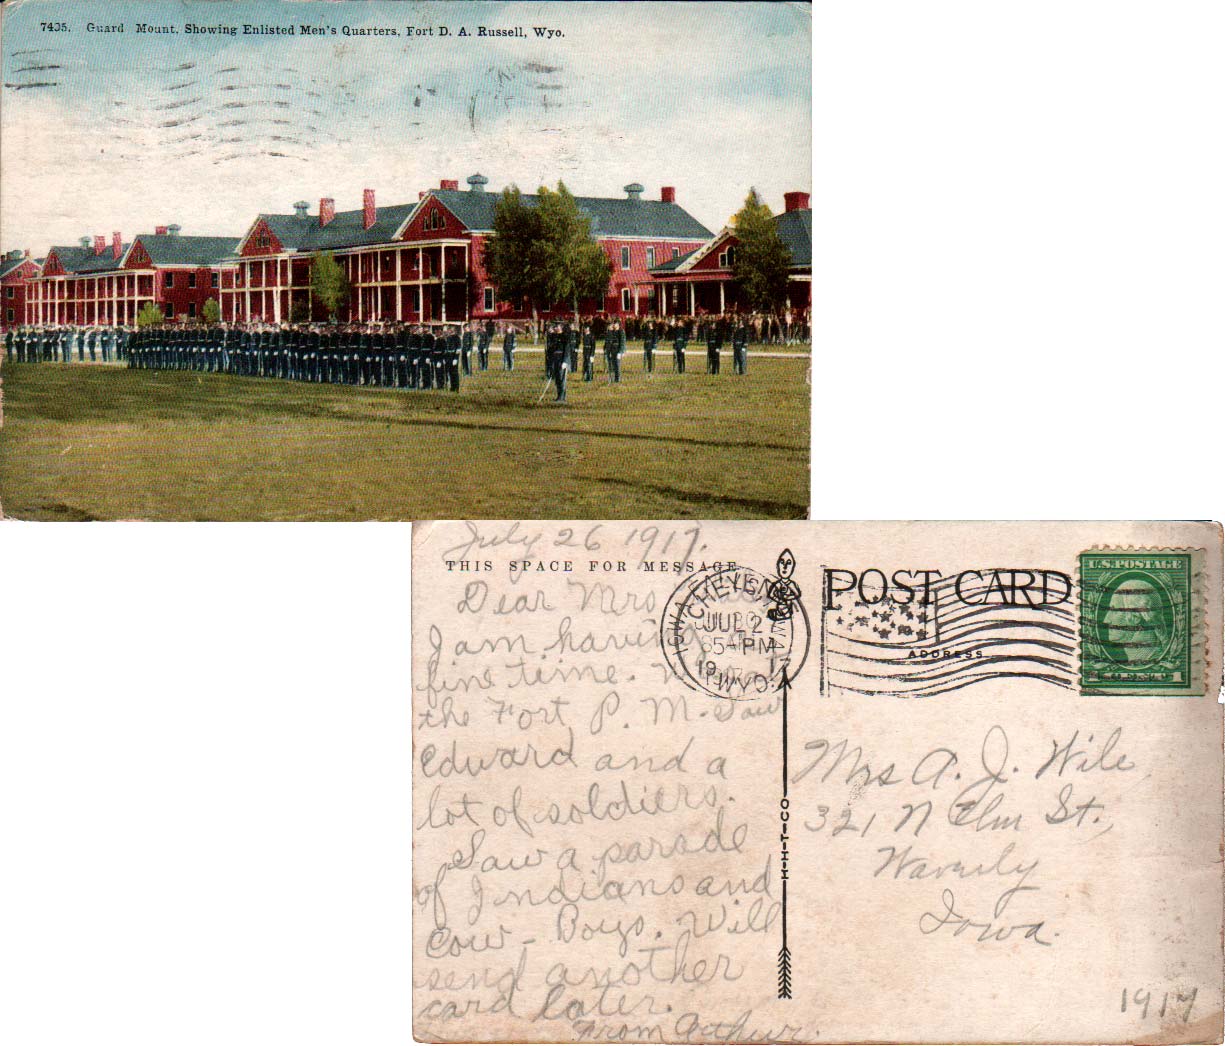 7435. Guard Mount, Showing Enlisted Men's Quarters, Fort D. A. Russell, Wyo.
July 26 1917.
THIS SPACE FOR MESSAGE
Dear Mrs
I am having
fine time.
the Fort P. M. Saw
Edward and a
lot of soldiers.
Saw a parade
of Indians and
Cow-Boys. Will
send another
card later.
From Arthur.
H-H-T-CO
IOWA FALLS
CHEYEN
JUL 2
5-PM
19 17
WYO.
POST CARD
ADDRESS
U.S. POSTAGE
1
Mrs A. J. Wile
321 N Elm St.,
Waverly
Iowa.
1917